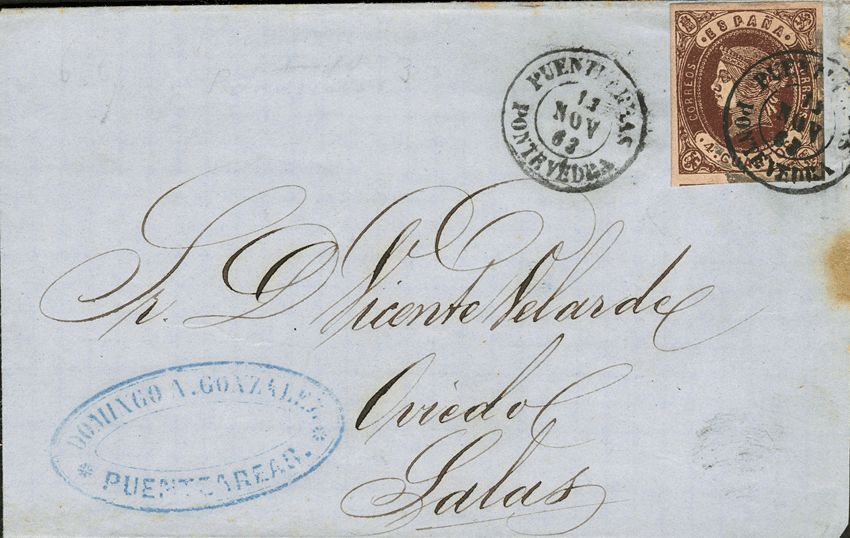 PUENTEAREAS
13
NOV
63
PONTEVEDRA
ESPAÑA
CORREOS
4 CUARTOS
13
NOV
63
PONTEVEDRA
Sr. D. Vicente Velarde
Oviedo
Salas
DOMINGO A. GONZALEZ.
PUENTEAREAS.